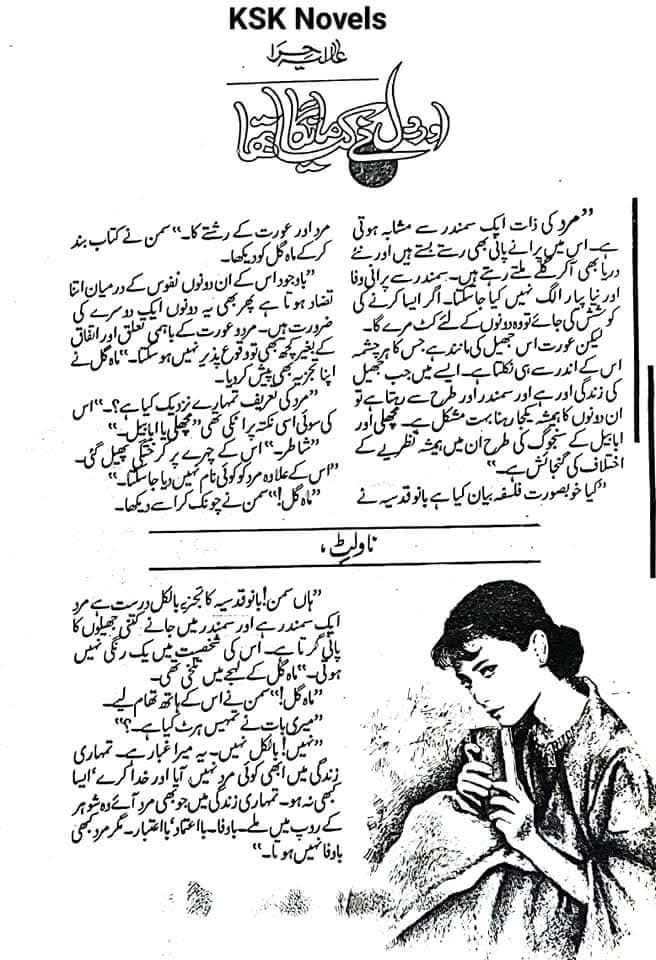 KSK Novels
عالیہ حرا
اور دل نے کیا مانگا تھا
”مرد کی ذات ایک سمندر سے مشابہ ہوتی
ہے۔ اس میں پرانے پانی بھی رستے بستے ہیں اور نئے
دریا بھی آ کر گلے ملتے رہتے ہیں۔ سمندر سے پرانی وفا
اور نیا پیار الگ نہیں کیا جاسکتا۔ اگر ایسا کرنے کی
کوشش کی جائے تو وہ دونوں کے لئے کٹ مرے گا۔
لیکن عورت اس جھیل کی مانند ہے جس کا ہر چشمہ
اس کے اندر سے ہی نکلتا ہے۔ ایسے میں جب جھیل
کی زندگی اور ہے اور سمندر اور طرح سے رہتا ہے تو
ان دونوں کا ہمیشہ یکجا رہنا بہت مشکل ہے۔ مچھلی اور
ابابیل کے سنجوگ کی طرح ان میں ہمیشہ نظریے کے
اختلاف کی گنجائش ہے۔“
”کیا خوبصورت فلسفہ بیان کیا ہے بانو قدسیہ نے
مرد اور عورت کے رشتے کا۔“ سمن نے کتاب بند
کر کے ماہ گل کو دیکھا۔
”باوجود اس کے ان دونوں نفوس کے درمیان اتنا
تضاد ہوتا ہے پھر بھی یہ دونوں ایک دوسرے کی
ضرورت ہیں۔ مرد و عورت کے باہمی تعلق اور اتفاق
کے بغیر کچھ بھی تو وقوع پذیر نہیں ہوسکتا۔“ ماہ گل نے
اپنا تجزیہ بھی پیش کر دیا۔
”مرد کی تعریف تمہارے نزدیک کیا ہے؟۔“ اس
کی سوئی اسی نکتہ پر اٹکی تھی ”مچھلی یا ابابیل۔“
”شاطر۔“ اس کے چہرے پر کرختگی پھیل گئی۔
”اس کے علاوہ مرد کو کوئی نام نہیں دیا جاسکتا۔“
”ماہ گل!“ سمن نے چونک کر اسے دیکھا۔
ناولٹ،
”ہاں سمن! بانو قدسیہ کا تجزیہ بالکل درست ہے مرد
ایک سمندر ہے اور سمندر میں جانے کتنی جھیلوں کا
پانی گرتا ہے۔ اس کی شخصیت میں یک رنگی نہیں
ہوتی۔“ ماہ گل کے لہجے میں تلخی تھی۔
”ماہ گل!“ سمن نے اس کے ہاتھ تھام لیے۔
”میری بات نے تمہیں ہرٹ کیا ہے۔؟“
”نہیں! بالکل نہیں۔ یہ میرا غبار ہے۔ تمہاری
زندگی میں ابھی کوئی مرد نہیں آیا اور خدا کرے‘ ایسا
کبھی نہ ہو۔ تمہاری زندگی میں جو بھی مرد آئے وہ شوہر
کے روپ میں ملے۔ باوفا۔ بااعتماد‘ بااعتبار۔ مگر مرد کبھی
باوفا نہیں ہوتا۔“